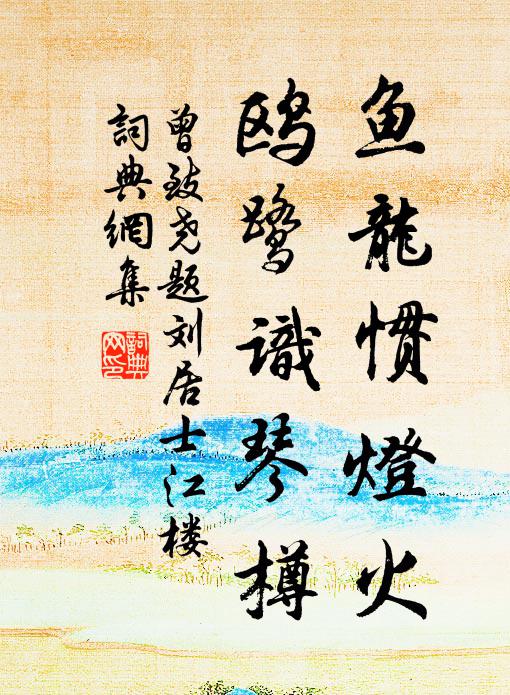 鱼龍惯燈火
鸥鹭識琴樽
曾致尧题刘居士江楼
詞典網集
詞典